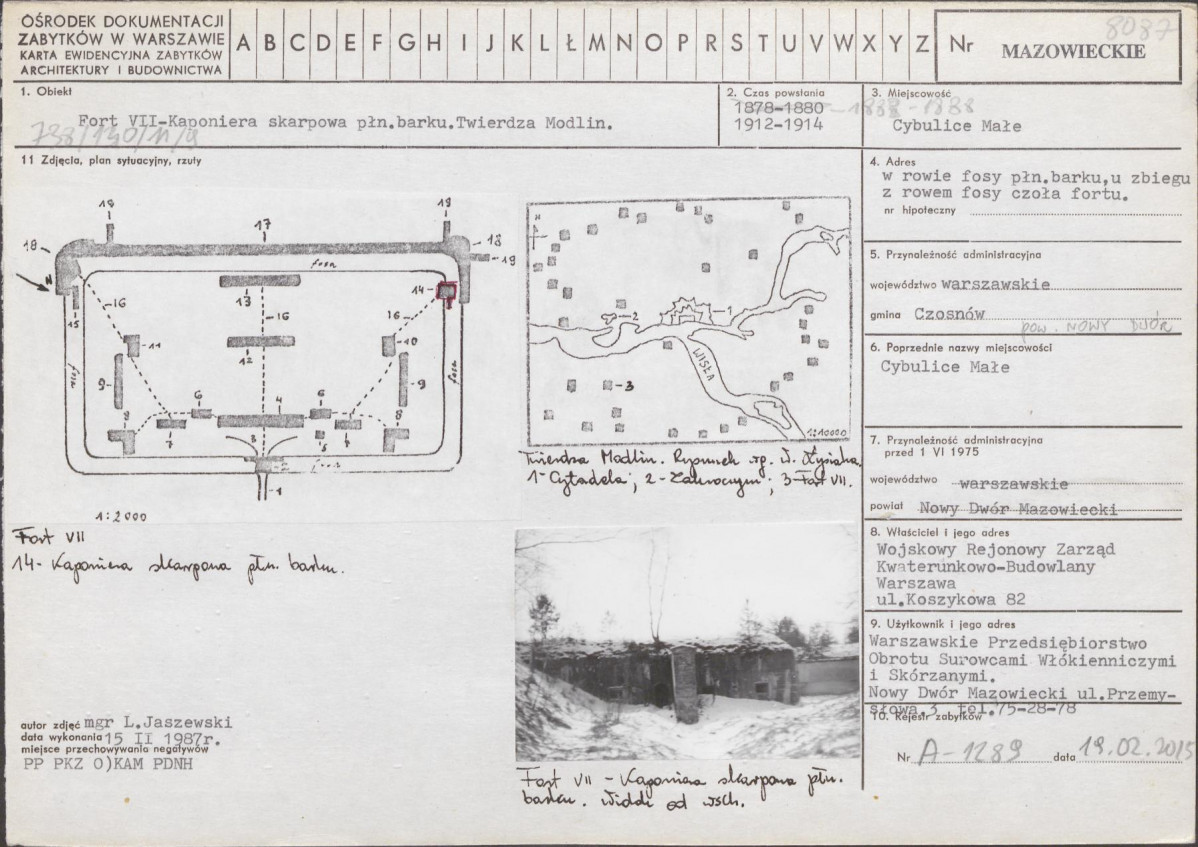 OŚRODEK DOKUMENTACJI
ZABYTKÓW W WARSZAWIE
KARTA EWIDENCYJNA ZABYTKÓW
ARCHITEKTURY I BUDOWNICTWA
A B C D E F G H I J K L Ł M N O P R S T U V W X Y Z
Nr
8087
MAZOWIECKIE
1. Obiekt
Fort VII-Kaponiera skarpowa płn.barku.Twierdza Modlin.
2. Czas powstania
1878-1880
1912-1914
3. Miejscowość
Cybulice Małe
11 Zdjęcia, plan sytuacyjny, rzuty
4. Adres
w rowie fosy płn.barku,u zbiegu
z rowem fosy czoła fortu.
nr hipoteczny
5. Przynależność administracyjna
województwo warszawskie
gmina Czosnów
pow. NOWY DWÓR
6. Poprzednie nazwy miejscowości
Cybulice Małe
7. Przynależność administracyjna
przed 1 VI 1975
województwo warszawskie
powiat Nowy Dwór Mazowiecki
8. Właściciel i jego adres
Wojskowy Rejonowy Zarząd
Kwaterunkowo-Budowlany
Warszawa
ul.Koszykowa 82
9. Użytkownik i jego adres
Warszawskie Przedsiębiorstwo
Obrotu Surowcami Włókienniczymi
i Skórzanymi.
Nowy Dwór Mazowiecki ul.Przemy-
słowa 3 tel.75-28-78
10. Rejestr zabytków
Nr A-1289 data 19.02.2015
19 17 19
18 18 19
fosa
13 14
15 16 16 16
11 12 10
9 9
fosa
6 4 6
8 7 3 5 7 8
2 fosa
1
1:2000
Fort VII
14- Kaponiera skarpowa płn. barku.
N
2 1
WISŁA
3
1:210000
Twierdza Modlin. Rysunek wg.
1- Cytadela; 2- Zakroczym; 3- Fort VII.
Fort VII - Kaponiera skarpowa płn.
barku. Widok od wsch.
autor zdjęć mgr L.Jaszewski
data wykonania 15 II 1987r.
miejsce przechowywania negatywów
PP PKZ O)KAM PDNH